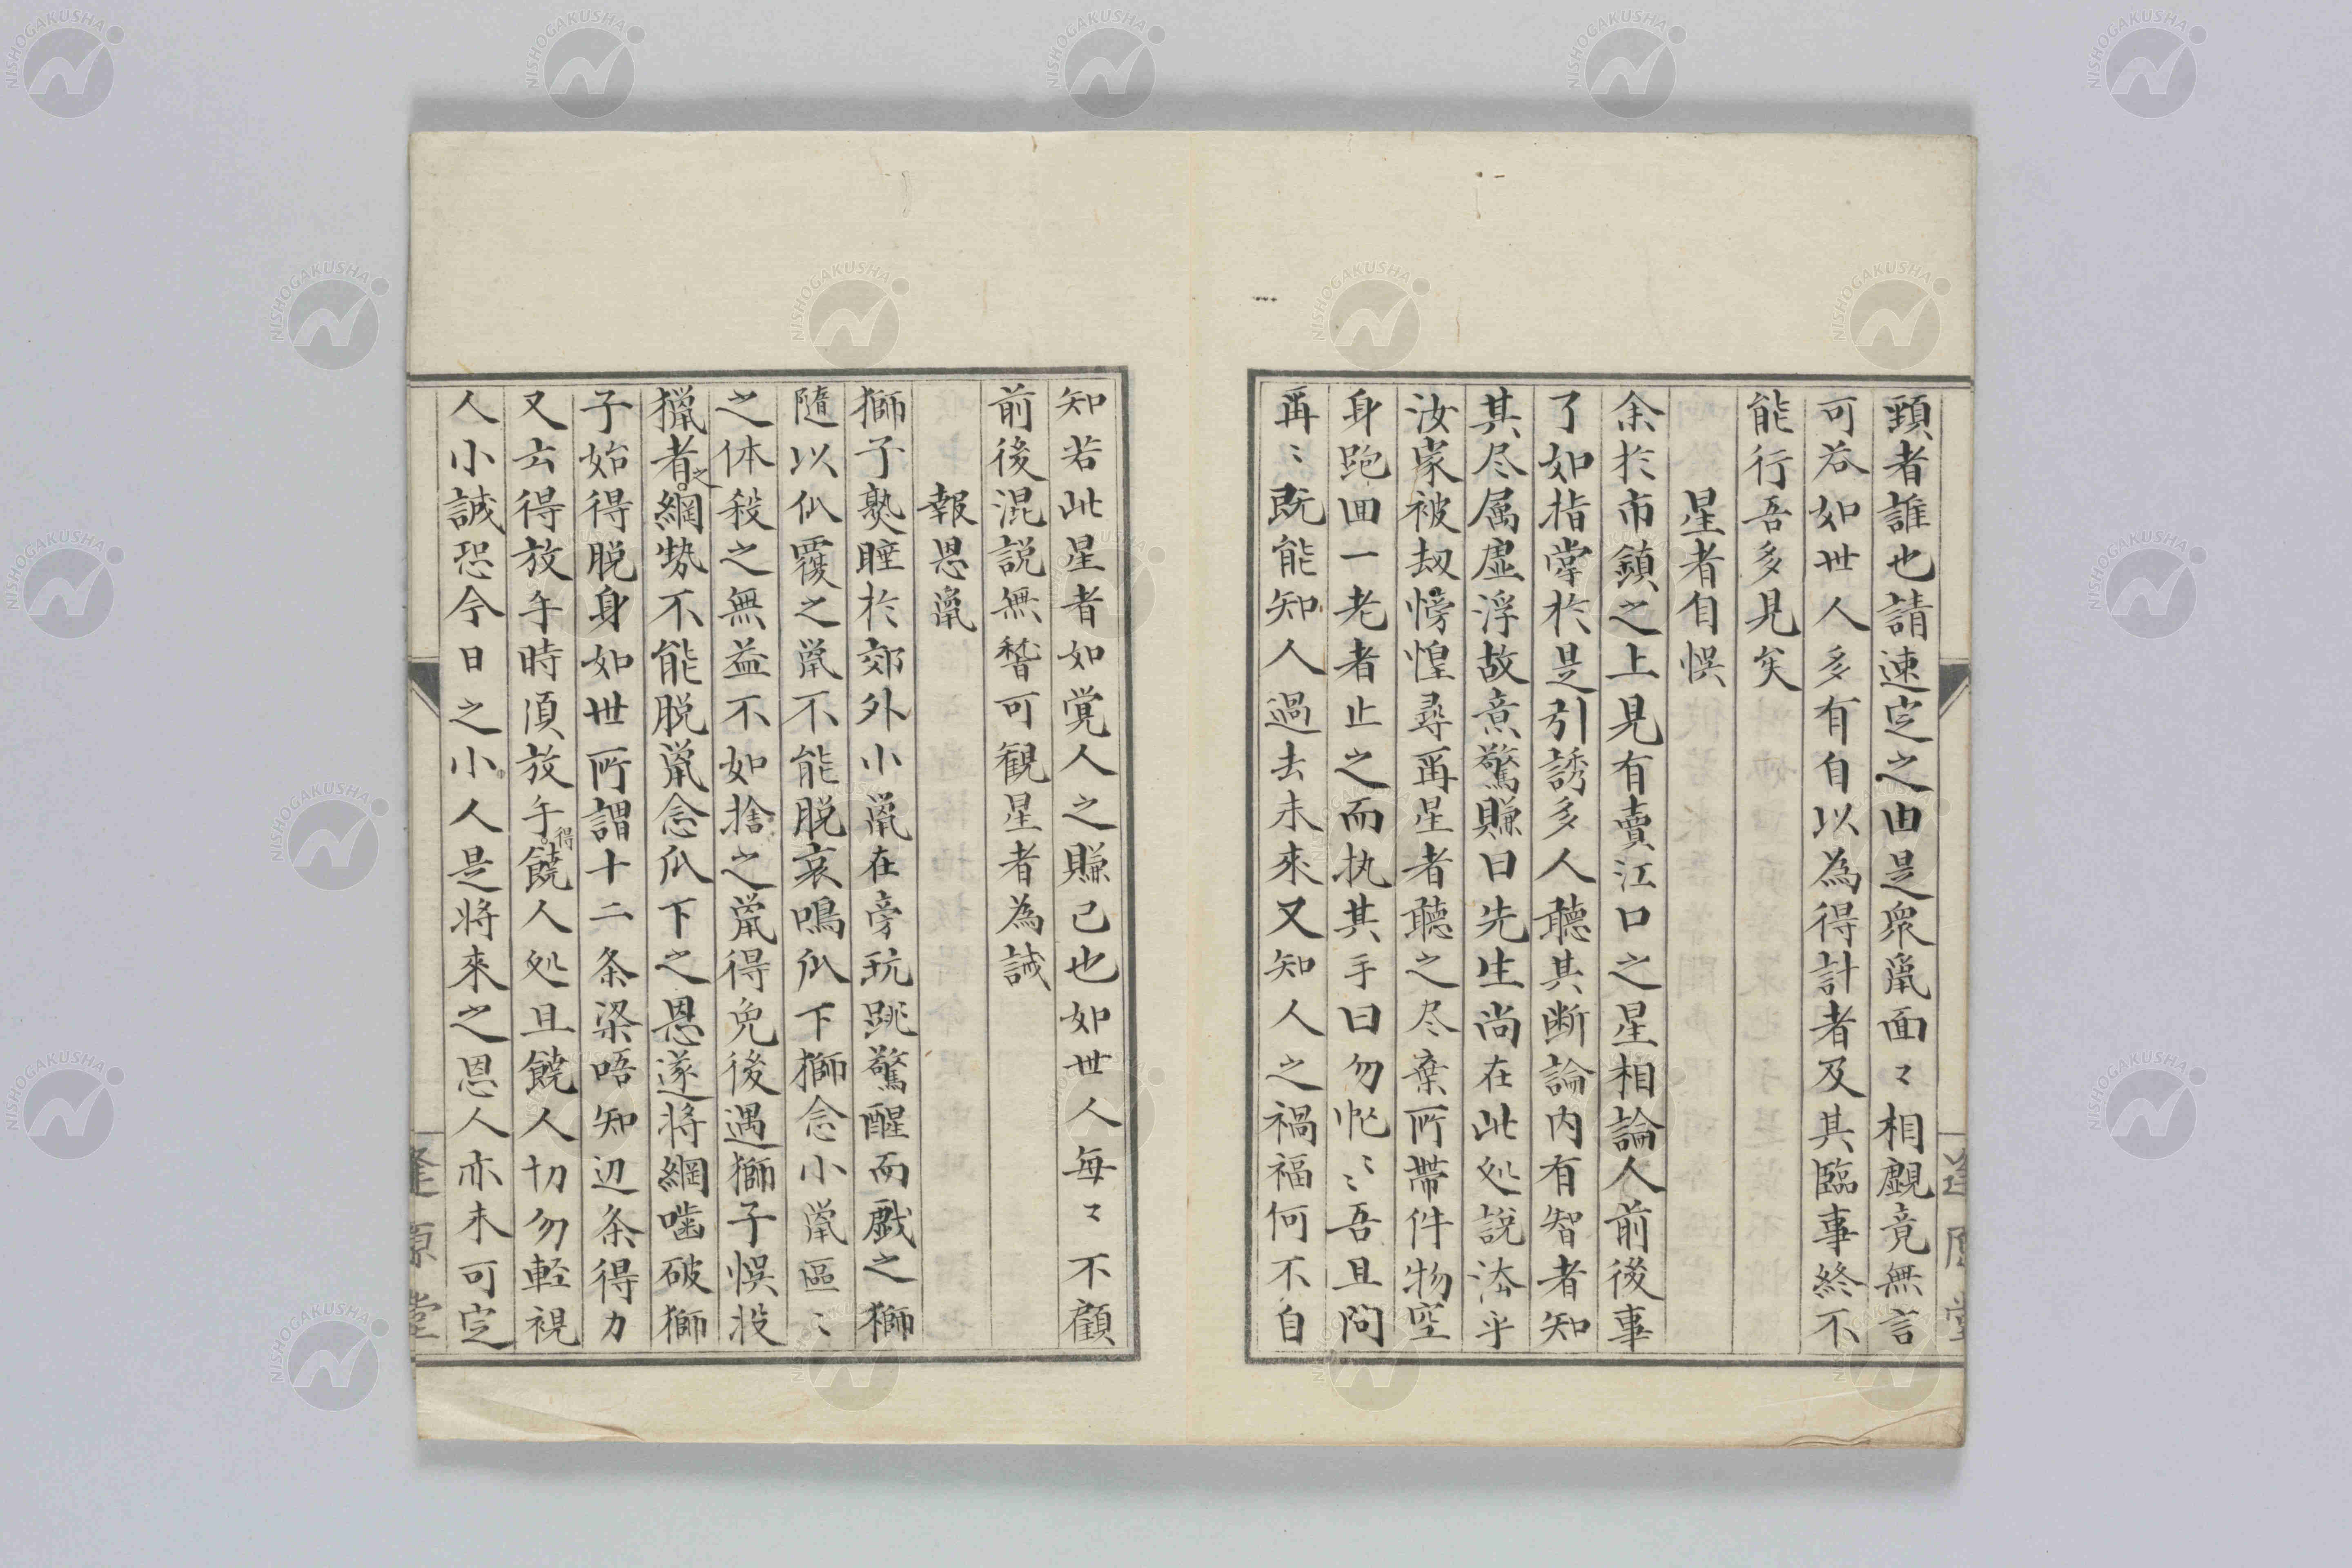 頸者誰也請速定之由是衆鼠面〻相覷竟無言
可答如世人多有自以為得計者及其臨事終不
能行吾多見矣
星者自悞
余於市鎮之上見有賣江口之星相論人前後事
了如指掌於是引誘多人聽其断論内有智者知
其尽属虚浮故意驚賺曰先生尚在此处說
汝家被刼慌惶尋再星者聽之尽棄所帶件物空
身跑回一老者止之而执其手曰勿忙〻〻吾且問
再〻既能知人過去未來又知人之禍福何不自
知若此星者如覚人之賺己也如世人每〻不顧
前後混説無稽可観星者為誡
報恩鼠
獅子熟睡於郊外小鼠在旁玩跳驚醒而戲之獅
隨以爪覆之鼠不能脱哀鳴爪下獅念小鼠區〻
之体殺之無益不如捨之鼠得免後遇獅子悞投
獵者之網勢不能脱鼠念爪下之恩遂将網嚙破獅
子始得脱身如世所謂十二条梁唔知辺条得力
又云得放手時湏放手得饒人処且饒人切勿軽視
人小誠恐今日之小人是将來之恩人亦未可定
逢源堂
NISHOGAKUSHA